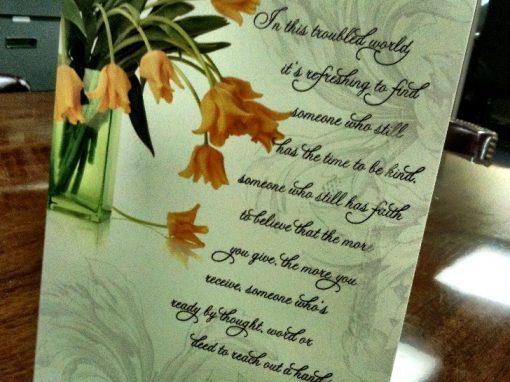 In this troubled world
it's refreshing to find
someone who still
has the time to be kind,
someone who still has faith
to believe that the more
you give, the more you
receive, someone who's
ready by thought, word or
deed to reach out a hand